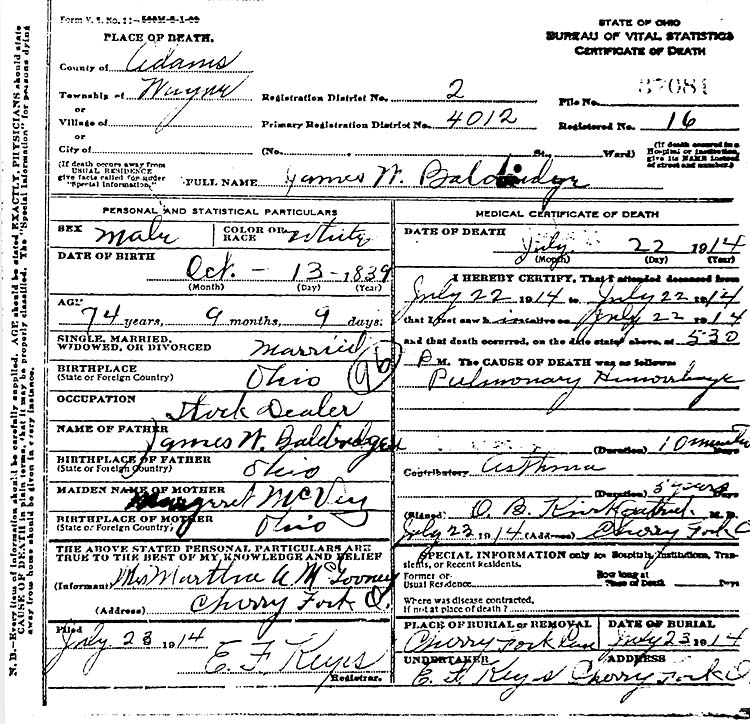 Form V. S. No. 11—500M-5-1-09
PLACE OF DEATH.
STATE OF OHIO
BUREAU OF VITAL STATISTICS
CERTIFICATE OF DEATH
County of Adams
Township of Wayne
Registration District No. 2
File No. 37081
or
Village of
Primary Registration District No. 4012
Registered No. 16
or
City of
(No. St., Ward)
(If death occurred in a Hospital or institution, give its NAME instead of street and number.)
(If death occurs away from USUAL RESIDENCE give facts called for under "Special Information.")
FULL NAME James W. Baldridge
PERSONAL AND STATISTICAL PARTICULARS
SEX Male
COLOR OR RACE White
DATE OF BIRTH
Oct. — 13 - 1839
(Month) (Day) (Year)
AGE
74 years, 9 months, 9 days.
SINGLE, MARRIED, WIDOWED, OR DIVORCED Married
BIRTHPLACE
(State or Foreign Country) Ohio
OCCUPATION
Stock Dealer
NAME OF FATHER James W. Baldridge
BIRTHPLACE OF FATHER
(State or Foreign Country) Ohio
MAIDEN NAME OF MOTHER Margaret McVey
BIRTHPLACE OF MOTHER
(State or Foreign Country) Ohio
THE ABOVE STATED PERSONAL PARTICULARS ARE TRUE TO THE BEST OF MY KNOWLEDGE AND BELIEF
(Informant) Mrs Martha A.
(Address) Cherry Fork O.
Filed July 23 1914
E. F. Keyes
Registrar.
MEDICAL CERTIFICATE OF DEATH
DATE OF DEATH
July 22 1914
(Month) (Day) (Year)
I HEREBY CERTIFY, That I attended deceased from
July 22 1914 to July 22 1914
that I last saw him alive on July 22 1914
and that death occurred, on the date stated above, at 530
P M. The CAUSE OF DEATH was as follows:
Pulmonary Hemorrhage
(Duration) 10 minutes Days
Contributory Asthma
(Duration) years Days
(Signed) O. B. Kirkpatrick M. D.
July 23 1914 (Address) Cherry Fork O
SPECIAL INFORMATION only for Hospitals, Institutions, Transients, or Recent Residents.
Former or Usual Residence
How long at Place of Death Days
Where was disease contracted, If not at place of death?
PLACE OF BURIAL OR REMOVAL
Cherry Fork
DATE OF BURIAL
July 23 1914
UNDERTAKER
E. F. Keyes
ADDRESS
Cherry Fork O
N. B.—Every item of information should be carefully supplied. AGE should be stated EXACTLY. PHYSICIANS should state
CAUSE OF DEATH in plain terms, that it may be properly classified. The "Special Information" for persons dying
away from home should be given in every instance.